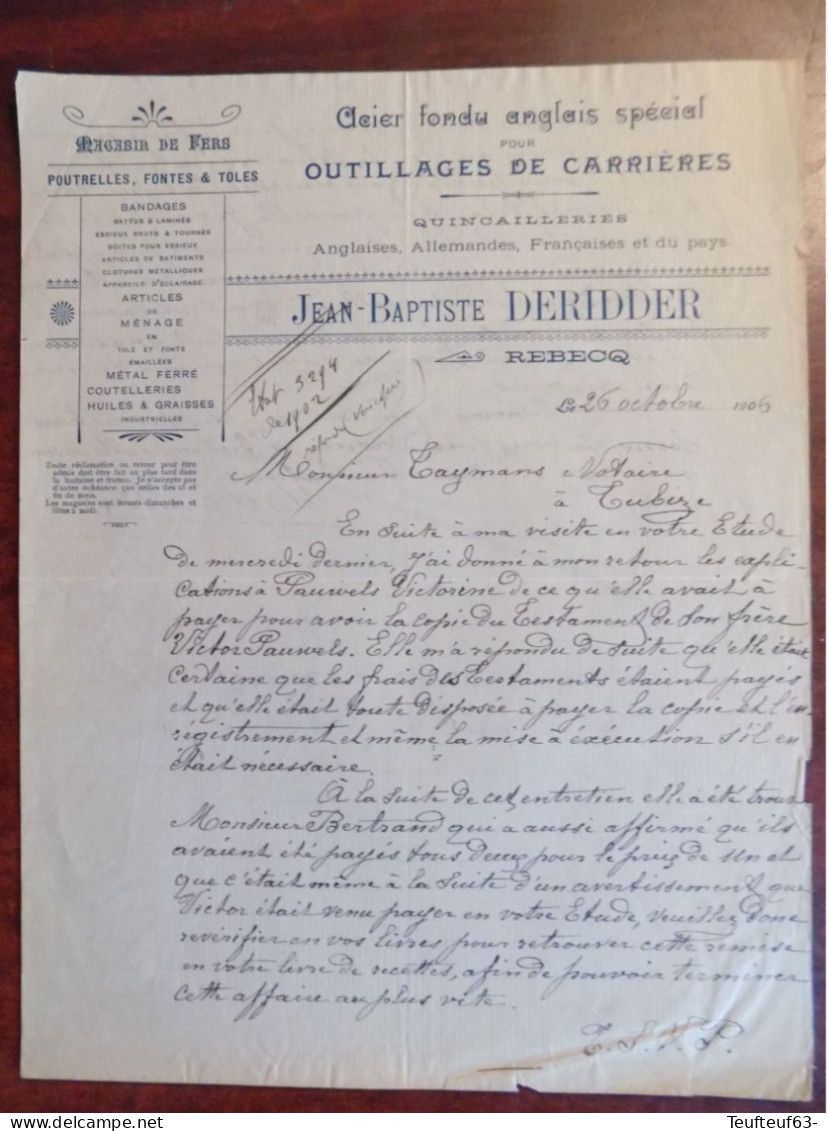 Magasin de Fers
POUTRELLES, FONTES & TOLES
BANDAGES
BATTUS & LAMINÉS
ESSIEUX BRUTS & TOURNÉS
BOITES POUR ESSIEUX
ARTICLES DE BATIMENTS
CLOTURES MÉTALLIQUES
APPAREILS D'ÉCLAIRAGE
ARTICLES
DE
MÉNAGE
EN
TOLE ET FONTE
ÉMAILLÉES
MÉTAL FERRÉ
COUTELLERIES
HUILES & GRAISSES
INDUSTRIELLES
Toute réclamation ou retour pour être
admis doit être fait au plus tard dans
la huitaine et franco. Je n'accepte pas
d'autre échéance que celles des 15 et
fin de mois.
Les magasins sont fermés dimanches et
fêtes à midi.
Acier fondu anglais spécial
POUR
OUTILLAGES DE CARRIÈRES
QUINCAILLERIES
Anglaises, Allemandes, Françaises et du pays
JEAN-BAPTISTE DERIDDER
REBECQ
Etat 3294
de 1902
répondu
Le 26 octobre 1906
Monsieur Taymans Notaire
à Tubize
En suite à ma visite en votre Etude
de mercredi dernier, j'ai donné à mon retour les expli-
cations à Pauwels Victorine de ce qu'elle avait à
payer pour avoir la copie du Testament de son frère
Victor Pauwels. Elle m'a répondu de suite qu'elle était
certaine que les frais des Testaments étaient payés
et qu'elle était toute disposée à payer la copie et l'en-
régistrement et même la mise à exécution s'il en
était nécessaire.
À la suite de cet entretien elle a été trouv
Monsieur Bertrand qui a aussi affirmé qu'ils
avaient été payés tous deux pour le prix de un et
que c'était même à la suite d'un avertissement que
Victor était venu payer en votre Etude, veuillez donc
revérifier en vos livres pour retrouver cette remise
en votre livre de recettes, afin de pouvoir terminer
cette affaire au plus vite.
T.S.V.P.
Teufteuf63-